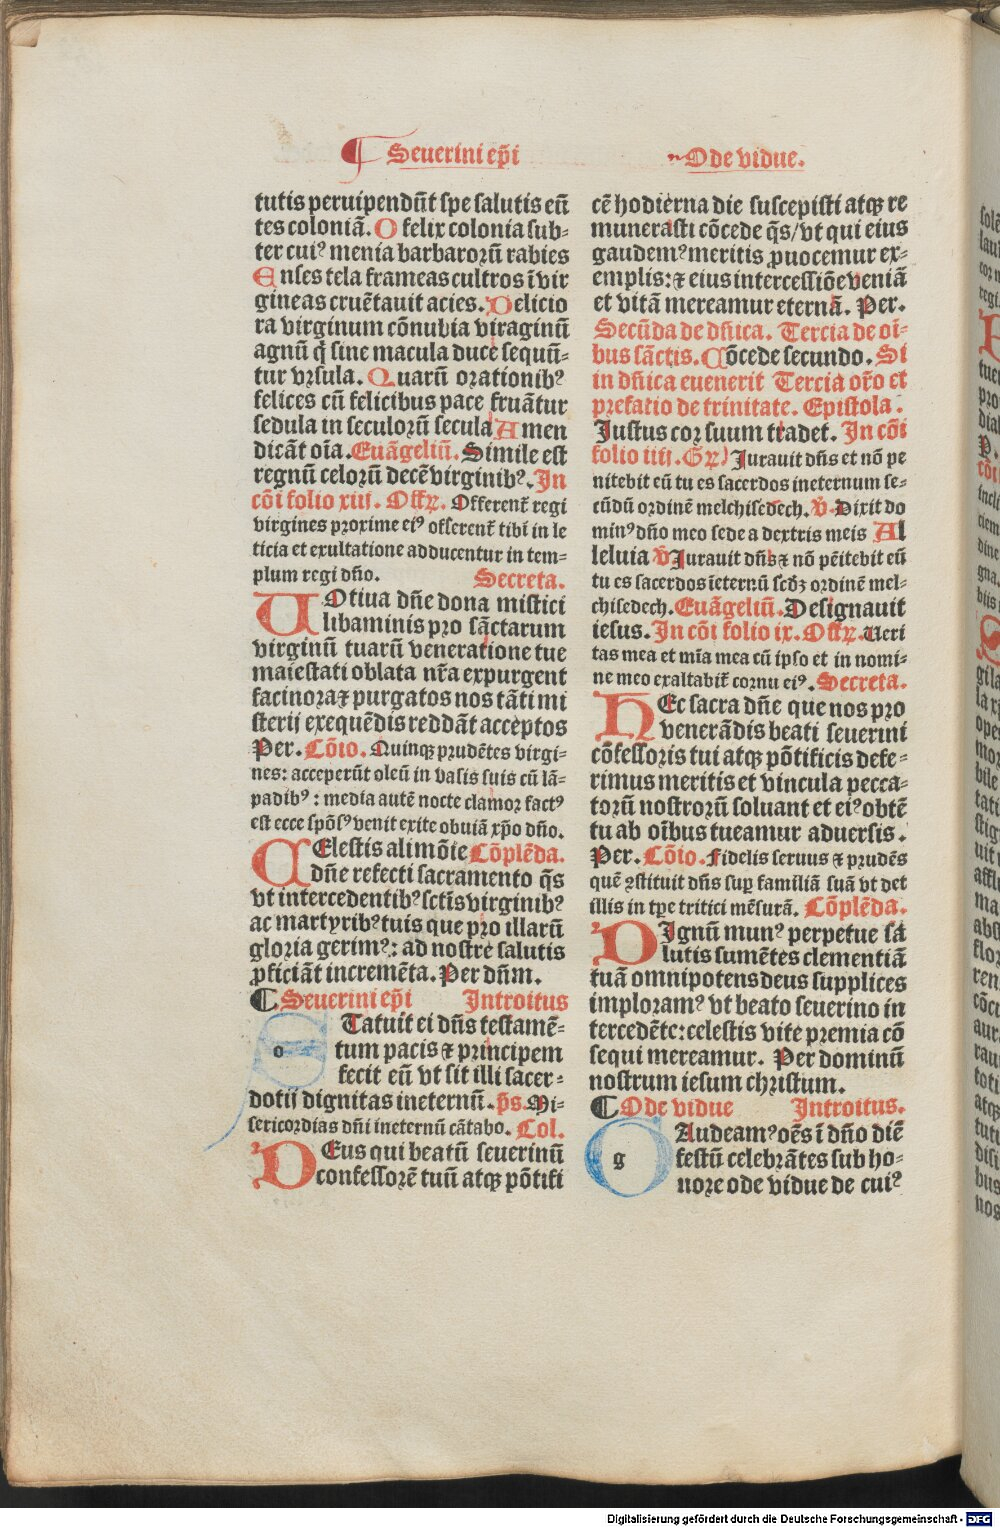 ¶ Seuerini ep̄i
Ode vidue.
tutis peruipendūt spe salutis eū
tes coloniā. O felix colonia sub-
ter cuiꝰ menia barbarorū rabies
Enses tela frameas cultros ī vir
gineas cruētauit acies. Delicio
ra virginum cōnubia viraginū
agnū q̄ sine macula duce sequū-
tur vrsula. Quarū orationibꝰ
felices cū felicibus pace fruātur
sedula in seculorū secula Amen
dicāt oīa. Euāgeliū. Simile est
regnū celorū decē virginibꝰ. In
cōi folio xiii. Offꝝ. Offerent̄ regi
virgines proxime eiꝰ offerent̄ tibi in le
ticia et exultatione adducentur in tem-
plum regi dn̄o. Secreta.
UOtiua dn̄e dona mistici
libaminis pro sāctarum
virginū tuarū veneratione tue
maiestati oblata nr̄a expurgent
facinora ⁊ purgatos nos tāti mi
sterij exequēdis reddāt acceptos
Per. Cōio. Quinqꝫ prudētes virgi-
nes: acceperūt oleū in vasis suis cū lā-
padibꝰ: media autē nocte clamor factꝰ
est ecce spōsꝰ venit exite obuiā xp̄o dn̄o.
CElestis alimōie Cōplēda.
dn̄e refecti sacramento q̄s
vt intercedentibꝰ sctīs virginibꝰ
ac martyribꝰ tuis que pro illarū
gloria gerimꝰ: ad nostre salutis
ꝓficiāt incremēta. Per dn̄m.
¶ Seuerini ep̄i Introitus
o Tatuit ei dn̄s testamē-
tum pacis ⁊ principem
fecit eū vt sit illi sacer-
dotij dignitas ineternū. p̄s. Mi-
sericordias dn̄i ineternū cātabo. Col.
DEus qui beatū seuerinū
confessorē tuū atqꝫ pōtifi
cē hodierna die suscepisti atqꝫ re
munerasti cōcede q̄s/ vt qui eius
gaudemꝰ meritis ꝓuocemur ex-
emplis: ⁊ eius intercessiōe veniā
et vitā mereamur eternā. Per.
Secūda de dn̄ica. Tercia de oī-
bus sāctis. Cōcede secundo. Si
in dn̄ica euenerit Tercia oro̅ et
prefatio de trinitate. Epistola.
Justus cor suum tradet. In cōi
folio iiii. Gꝝ) Jurauit dn̄s et nō pe
nitebit eū tu es sacerdos ineternum se-
cūdū ordinē melchisedech. v̄. Dixit do
minꝰ dn̄o meo sede a dextris meis Al
leluia v̄ Jurauit dn̄s ⁊ nō pēitebit eū
tu es sacerdos īeternū scdꝫ ordinē mel-
chisedech. Euāgeliū. Designauit
iesus. In cōi folio ix. Offꝝ. Ueri
tas mea et mīa mea cū ipso et in nomi-
ne meo exaltabit̄ cornu eiꝰ. Secreta.
HEc sacra dn̄e que nos pro
venerādis beati seuerini
cōfessoris tui atqꝫ pōtificis defe-
rimus meritis et vincula pecca-
torū nostrorū soluant et eiꝰ obtē
tu ab oībus tueamur aduersis.
Per. Cōio. Fidelis seruus ⁊ prudēs
quē ꝯstituit dn̄s suꝑ familiā suā vt det
illis in tꝑe tritici mēsurā. Cōplēda.
DIgnū munꝰ perpetue sa
lutis sumētes clementiā
tuā omnipotens deus supplices
imploramꝰ vt beato seuerino in
tercedēte: celestis vite premia cō
sequi mereamur. Per dominū
nostrum iesum christum.
¶ Ode vidue Introitus.
g Audeamꝰ oēs ī dn̄o diē
festū celebrātes sub ho-
nore ode vidue de cuiꝰ
Digitalisierung gefördert durch die Deutsche Forschungsgemeinschaft - DFG